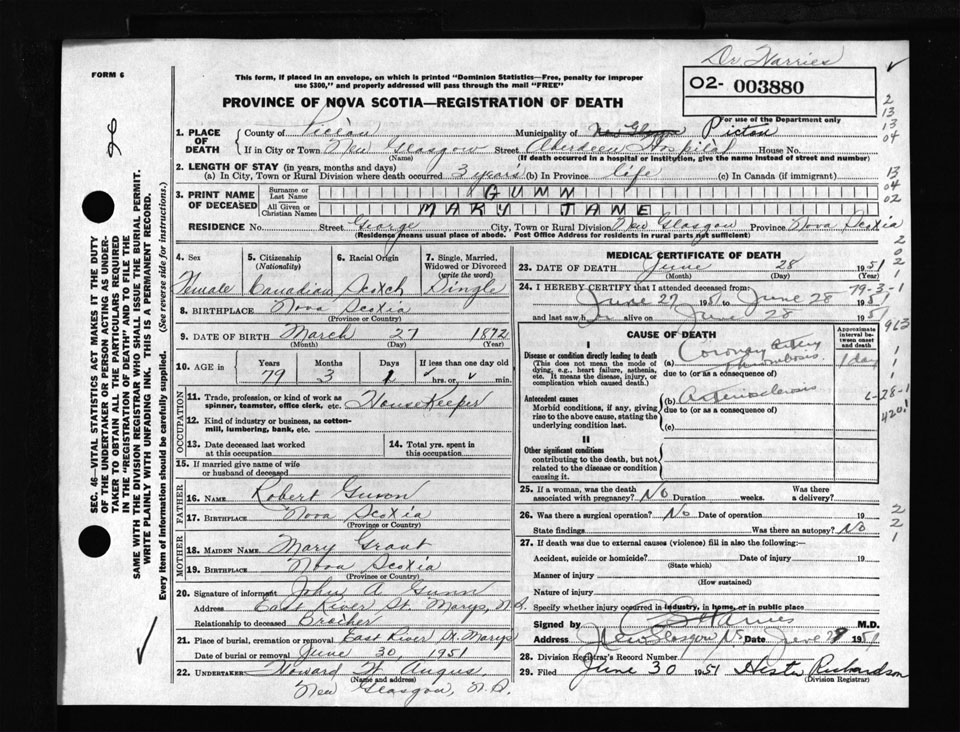 Dr Harries
FORM 6
This form, if placed in an envelope, on which is printed "Dominion Statistics—Free, penalty for improper
use $300," and properly addressed will pass through the mail "FREE"
02- 003880
PROVINCE OF NOVA SCOTIA—REGISTRATION OF DEATH
For use of the Department only
1. PLACE OF DEATH
County of Pictou Municipality of New Glasgow Pictou
If in City or Town New Glasgow Street Aberdeen Hospital House No.
(Name) (If death occurred in a hospital or institution, give the name instead of street and number)
2. LENGTH OF STAY (in years, months and days)
(a) In City, Town or Rural Division where death occurred 3 years (b) In Province life (c) In Canada (if immigrant)
3. PRINT NAME OF DECEASED
Surname or Last Name GUNN
All Given or Christian Names MARY JANE
RESIDENCE No. Street George City, Town or Rural Division New Glasgow Province Nova Scotia
(Residence means usual place of abode. Post Office Address for residents in rural parts not sufficient)
4. Sex
Female
5. Citizenship
(Nationality)
Canadian
6. Racial Origin
Scotch
7. Single, Married,
Widowed or Divorced
(write the word)
Single
8. BIRTHPLACE Nova Scotia
(Province or Country)
9. DATE OF BIRTH March 27 1872
(Month) (Day) (Year)
10. AGE in
Years Months Days If less than one day old
79 3 1 hrs. or min.
OCCUPATION
11. Trade, profession, or kind of work as
spinner, teamster, office clerk, etc. Housekeeper
12. Kind of industry or business, as cotton-
mill, lumbering, bank, etc.
13. Date deceased last worked
at this occupation
14. Total yrs. spent in
this occupation
15. If married give name of wife
or husband of deceased
FATHER
16. NAME Robert Gunn
17. BIRTHPLACE Nova Scotia
(Province or Country)
MOTHER
18. MAIDEN NAME Mary Grant
19. BIRTHPLACE Nova Scotia
(Province or Country)
20. Signature of informant John A Gunn
Address East River St. Marys, N.S.
Relationship to deceased Brother
21. Place of burial, cremation or removal East River St. Marys
Date of burial or removal June 30, 1951
22. UNDERTAKER Howard W Angus,
(Name and address)
New Glasgow, N.S.
MEDICAL CERTIFICATE OF DEATH
23. DATE OF DEATH June 28 1951
(Month) (Day) (Year)
24. I HEREBY CERTIFY that I attended deceased from:
79-3-1
June 27 1951 to June 28 1951
and last saw h er alive on June 28 1951
CAUSE OF DEATH
Approximate
interval be-
tween onset
and death
I
Disease or condition directly leading to death
(This does not mean the mode of
dying, e.g., heart failure, asthenia,
etc. It means the disease, injury, or
complication which caused death.)
(a) Coronary artery
thrombosis.
1 day
due to (or as a consequence of)
Antecedent causes
Morbid conditions, if any, giving
rise to the above cause, stating the
underlying condition last.
(b) Arteriosclerosis
due to (or as a consequence of)
(c)
II
Other significant conditions
contributing to the death, but not
related to the disease or condition
causing it.
25. If a woman, was the death
associated with pregnancy? No Duration weeks. Was there
a delivery?
26. Was there a surgical operation? No Date of operation 19
State findings Was there an autopsy? No
27. If death was due to external causes (violence) fill in also the following:—
Accident, suicide or homicide? Date of injury 19
(State which)
Manner of injury
(How sustained)
Nature of injury
Specify whether injury occurred in industry, in home, or in public place
Signed by Harries M.D.
Address New Glasgow NS Date June 29 1951
28. Division Registrar's Record Number
29. Filed June 30 1951 Hester Richardson
(Division Registrar)
SEC. 46—VITAL STATISTICS ACT MAKES IT THE DUTY
OF THE UNDERTAKER OR PERSON ACTING AS UNDER-
TAKER TO OBTAIN ALL THE PARTICULARS REQUIRED
IN THE "REGISTRATION OF DEATH" AND TO FILE THE
SAME WITH THE DIVISION REGISTRAR WHO SHALL ISSUE THE BURIAL PERMIT.
WRITE PLAINLY WITH UNFADING INK. THIS IS A PERMANENT RECORD.
Every item of information should be carefully supplied. (See reverse side for instructions.)
2
13
13
04
13
04
02
2
2
2
1
963
1
1
1
6-28-1
420.1
2
2
1